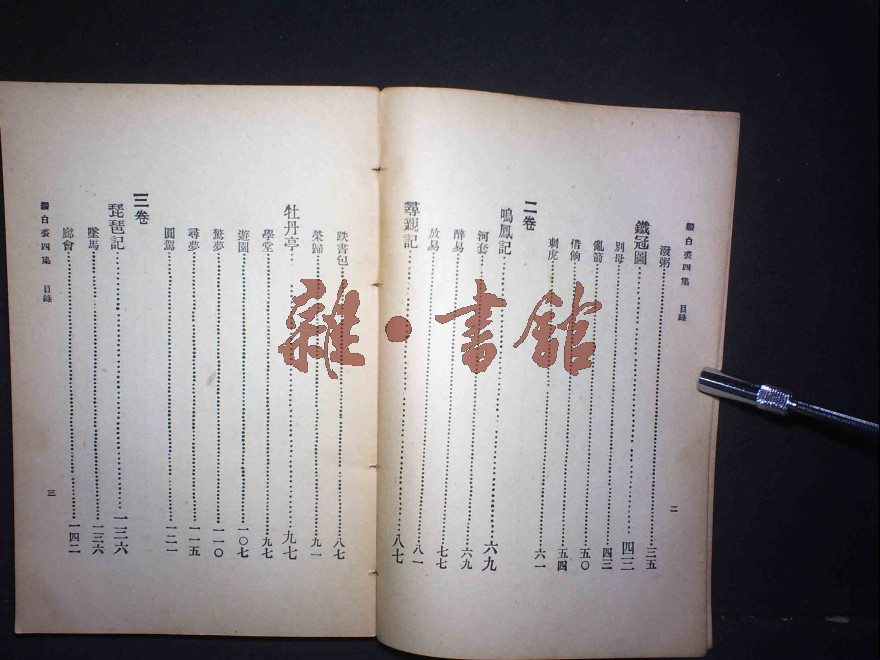 綴白裘四集 目錄
潑粥 三五
鐵冠圖 四三
別母 四三
亂箭 五〇
借餉 五四
刺虎 六一
二卷
鳴鳳記 六九
河套 六九
醉易 七七
放易 八一
尋親記 八七
二
跌書包 八七
榮歸 九一
牡丹亭 九七
學堂 九七
遊園 一〇七
驚夢 一一〇
尋夢 一一五
圓駕 一二一
三卷
琵琶記 一三六
墜馬 一三六
廊會 一四二
綴白裘四集 目錄
三
雜·書館